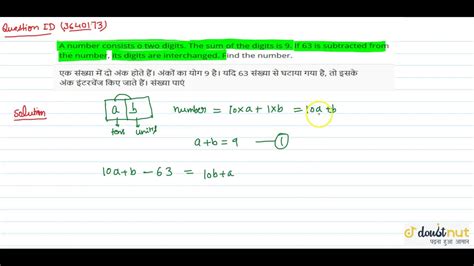 Question ID (3640173)
A number consists o two digits. The sum of the digits is 9. If 63 is subtracted from
the number, its digits are interchanged. Find the number.
एक संख्या में दो अंक होते हैं। अंकों का योग 9 है। यदि 63 संख्या से घटाया गया है, तो इसके
अंक इंटरचेंज किए जाते हैं। संख्या पाएं
Solution
a b
tens units
number = 10xa + 1xb = 10a+b
a+b = 9 — 1
10a+b - 63 = 10b+a
doubtnut
पढ़ना हुआ आसान